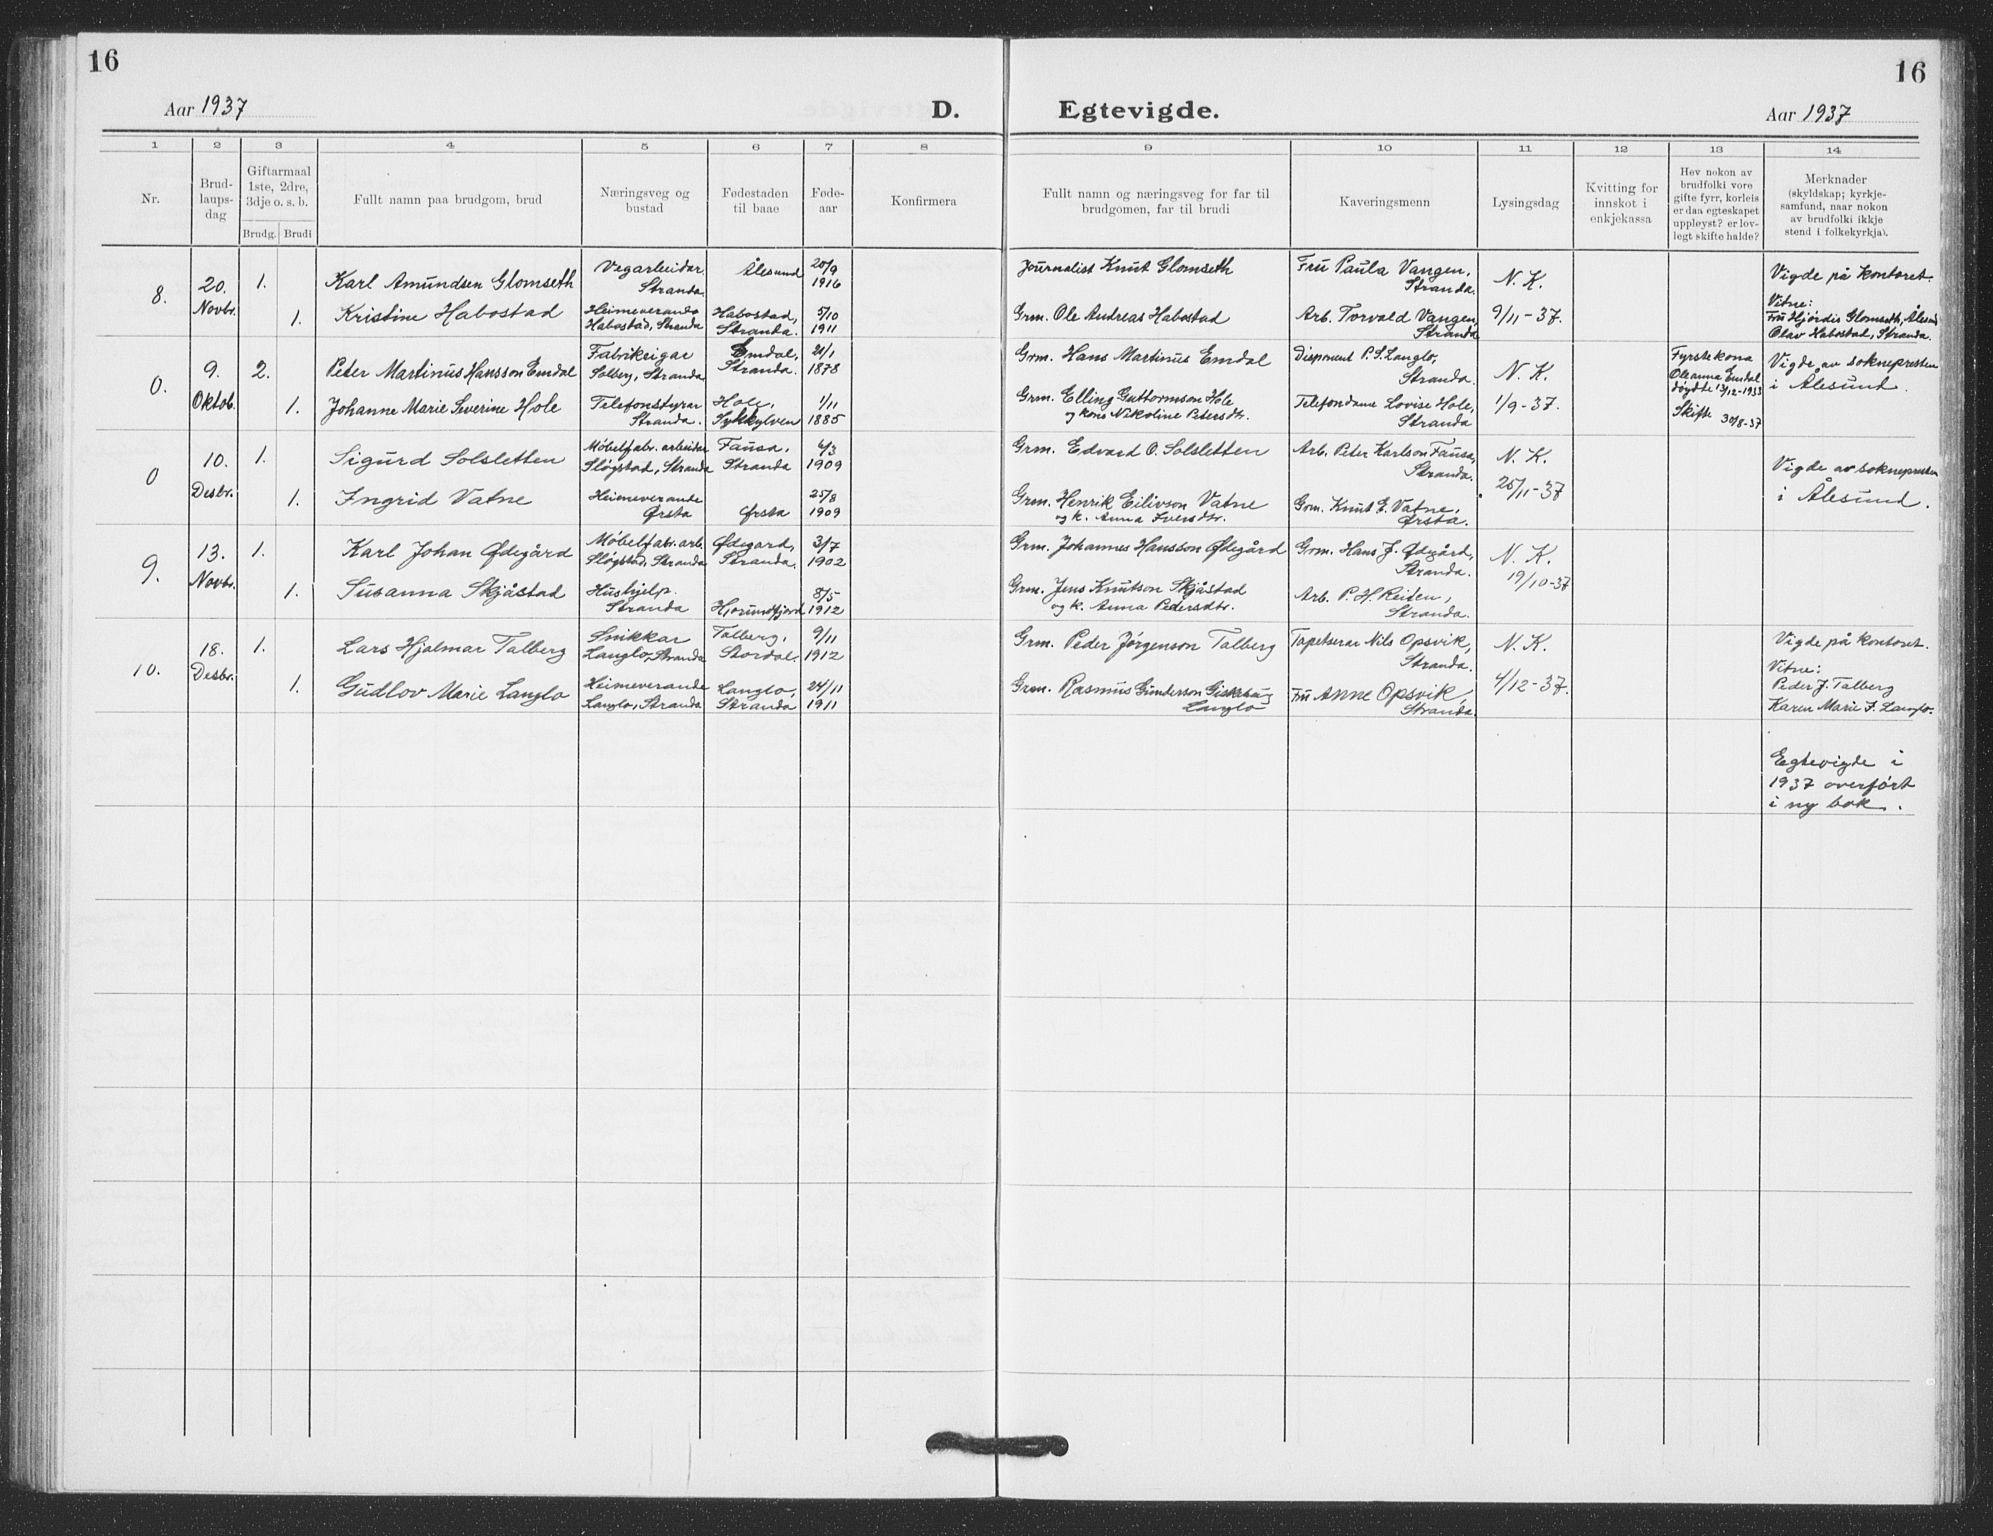 16
16
Aar 1937
D.
Egtevigde.
Aar 1937
1 2 3 4 5 6 7 8 9 10 11 12 13 14
Nr.
Brud-
laups-
dag
Giftarmaal
1ste, 2dre,
3dje o. s. b.
Brudg. Brudi
Fullt namn paa brudgom, brud
Næringsveg og
bustad
Fødestaden
til baae
Føde-
aar
Konfirmera
Fullt namn og næringsveg for far til
brudgomen, far til brudi
Kaveringsmenn
Lysingsdag
Kvitting for
innskot i
enkjekassa
Hev nokon av
brudfolki vore
gifte fyrr, korleis
er daa egteskapet
uppløyst? er lov-
legt skifte halde?
Merknader
(skyldskap; kyrkje-
samfund, naar nokon
av brudfolki ikkje
stend i folkekyrkja).
8.
20.
Novbr.
1.
Karl Amundsen Glomseth
Vegarbeidar
Stranda
Ålesund
20/9
1916
Journalist Knut Glomseth
Fru Paula Vangen,
Stranda.
N. K.
Vigde på kontoret.
1.
Kristine Habostad
Heimeverande
Habostad, Stranda
Habostad,
Stranda.
5/10
1911
Grm. Ole Andreas Habostad
Arb. Torvald Vangen,
Stranda
9/11-37.
Vitne:
Fru Hjördis Glomseth, Ålesund
Olav Habostad, Stranda.
0.
9.
Oktob.
2.
Peter Martinus Hansson Emdal
Fabrikeigar
Solberg, Stranda
Emdal,
Stranda.
21/1
1878
Grm. Hans Martinus Emdal
Disponent P. S. Langlo,
Stranda.
N. K.
Fyrstekona
Oleanna Emdal
døydte 13/12-1933
Skifte 30/8-37
Vigde av soknepresten
i Ålesund.
1.
Johanne Marie Severine Hole
Telefonstyrar
Stranda.
Hole,
Sykkylven
1/11
1885
Grm. Elling Guttormson Hole
og kona Nikoline Petersdtr.
Telefondame Lovise Hole,
Stranda
1/9-37.
0
10.
Desbr.
1.
Sigurd Solsletten
Møbelfabr. arbeidar
Sløgstad, Stranda
Fausa,
Stranda
6/3
1909
Grm. Edvard O. Solsletten
Arb. Peter Karlson Fausa,
Stranda.
N. K.
Vigde av soknepresten
i Ålesund.
1.
Ingrid Vatne
Heimeverande
Ørsta
Ørsta
25/8
1909
Grm. Henrik Eilivson Vatne
og k. Anna Iversdtr.
Grm. Knut E. Vatne,
Ørsta.
25/11-37
9.
13.
Novbr.
1.
Karl Johan Ødegård
Møbelfabr. arb.
Sløgstad, Stranda
Ødegard,
Stranda.
3/7
1902
Grm. Johannes Hansson Ødegård
Grm. Hans J. Ødegård,
Stranda.
N. K.
1.
Susanna Skjåstad
Hushjelp.
Stranda
Hjorundfjord
8/5
1912
Grm. Jens Knutson Skjåstad
og k. Anna Pedersdtr.
Arb. P. H. Reiten,
Stranda.
19/10-37
10.
18.
Desbr.
1.
Lars Hjalmar Talberg
Snikkar
Langlo, Stranda
Talberg,
Stordal.
9/11
1912
Grm. Peder Jørgenson Talberg
Tapetserar Nils Opsvik,
Stranda.
N. K.
Vigde på kontoret.
Vitne:
Peder J. Talberg
Karen Marie F. Langlo.
1.
Gudlov Marie Langlo
Heimeverande
Langlo, Stranda
Langlo,
Stranda
24/11
1911
Grm. Rasmus Gunderson
Langlo
Fru Anne Opsvik,
Stranda.
4/12-37.
Egtevigde i
1937 overført
i ny bok.